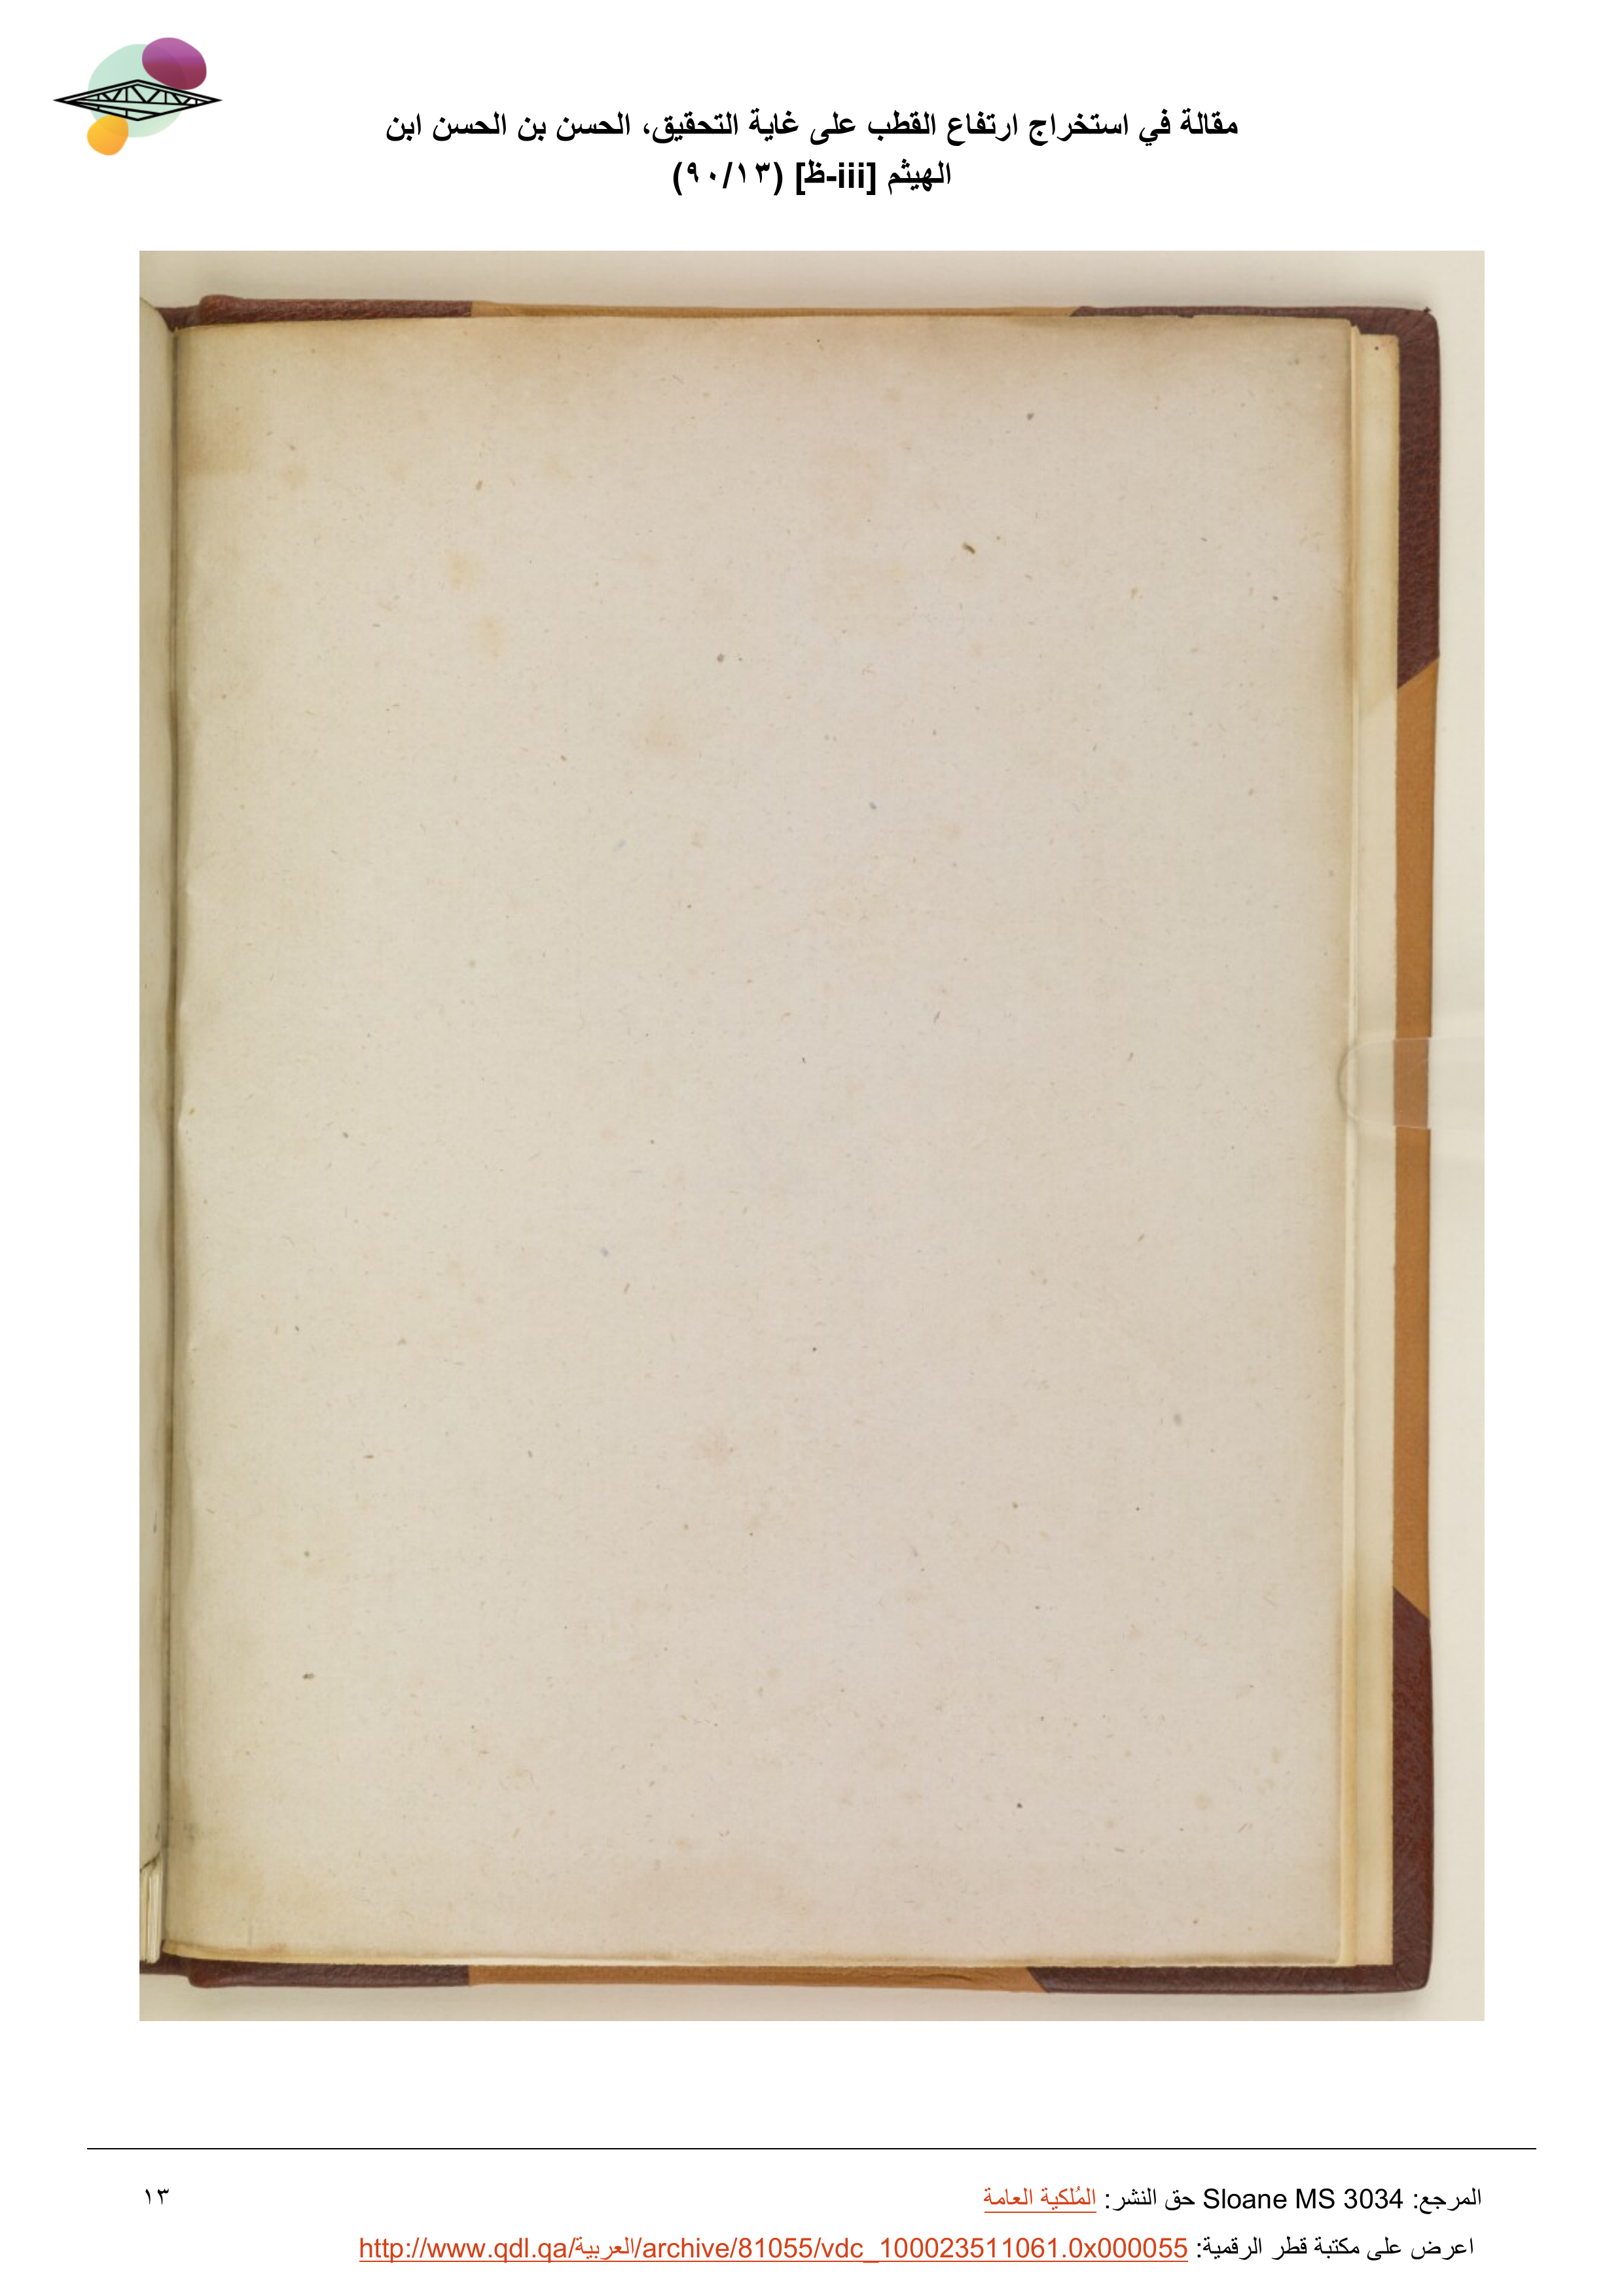 مقالة في استخراج ارتفاع القطب على غاية التحقيق، الحسن بن الحسن ابن
الهيثم [iii-ظ] (٩٠/١٣)
المرجع: Sloane MS 3034 حق النشر: المُلكية العامة
١٣
اعرض على مكتبة قطر الرقمية: http://www.qdl.qa/العربية/archive/81055/vdc_100023511061.0x000055